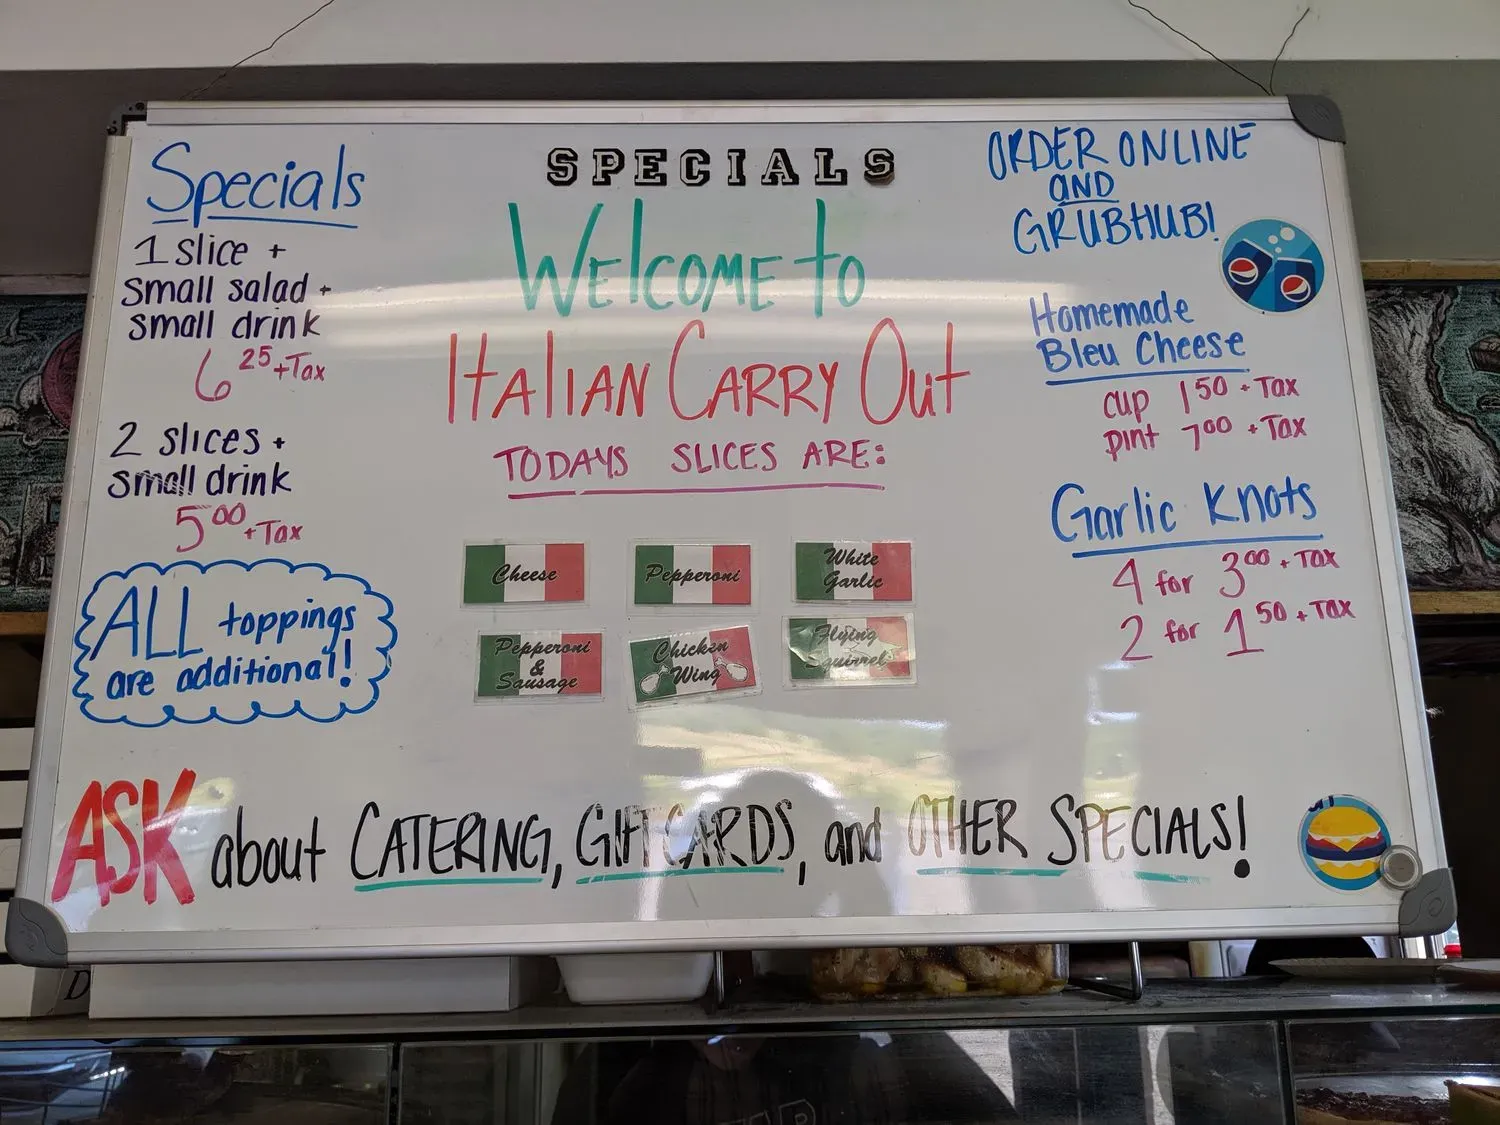 SPECIALS
Specials
1 slice +
small salad +
small drink
6 25 + Tax
2 slices +
small drink
5 00 + Tax
ALL toppings
are additional!
WELCOME to
ITALIAN CARRY OUt
TODAYS SLICES ARE:
Cheese
Pepperoni
White
Garlic
Pepperoni
&
Sausage
Chicken
Wing
Flying
Squirrel
ORDER ONLINE
AND
GRUBHUB!
Homemade
Bleu Cheese
cup 1 50 + Tax
pint 7 00 + Tax
Garlic Knots
4 for 3 00 + Tax
2 for 1 50 + Tax
ASK about CATERING, GIFTCARDS, and OTHER SPECIALS!
D